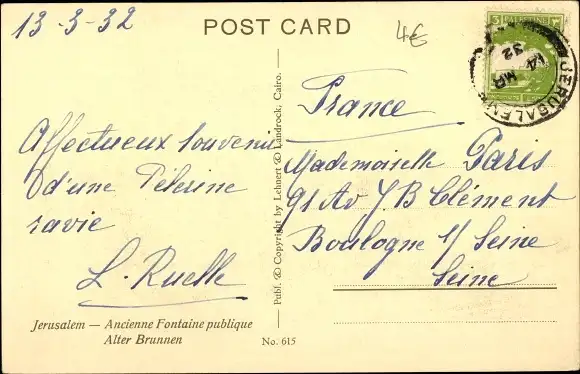 13-3-32
POST CARD
4€
5 PALESTINE
JERUSALEM
14 MR
32
France
Affectueux souvenir
d'une Pèlerine
ravie
L. Ruelle
Mademoiselle Paris
91 Av J.B Clément
Boulogne s/ Seine
Seine
Publ. & Copyright by Lehnert & Landrock, Cairo.
Jerusalem — Ancienne Fontaine publique
Alter Brunnen
No. 615